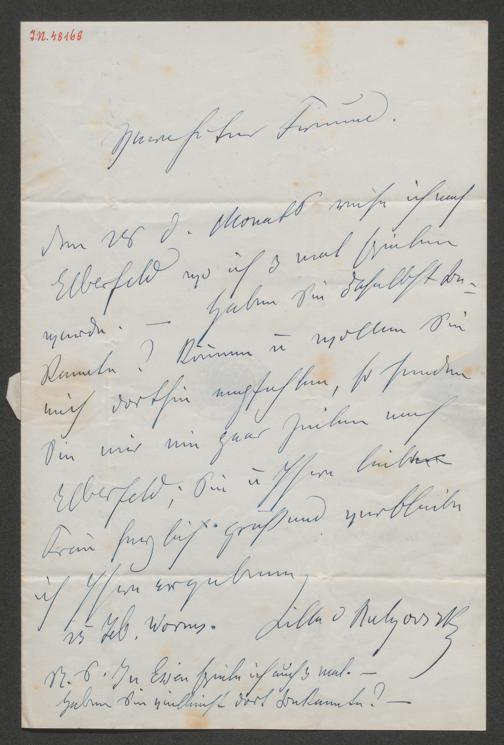 I.N. 48168
Verehrter Freund.
Am 28 d. Monats reise ich nach
Elberfeld wo ich 3 mal spielen
werde. — Haben Sie daselbst Be=
kannte? Können u wollen Sie
mich dorthin empfehlen, so senden
Sie mir ein paar Zeilen nach
Elberfeld; Sie u Ihre liebe
Frau herzlich grüßend verbleibe
ich Ihre ergebene
25 Feb. Worms. Lilla v Bulyovszky
N. S. In Essen spiele ich auch 3 mal. —
Haben Sie vielleicht dort Bekannte? —